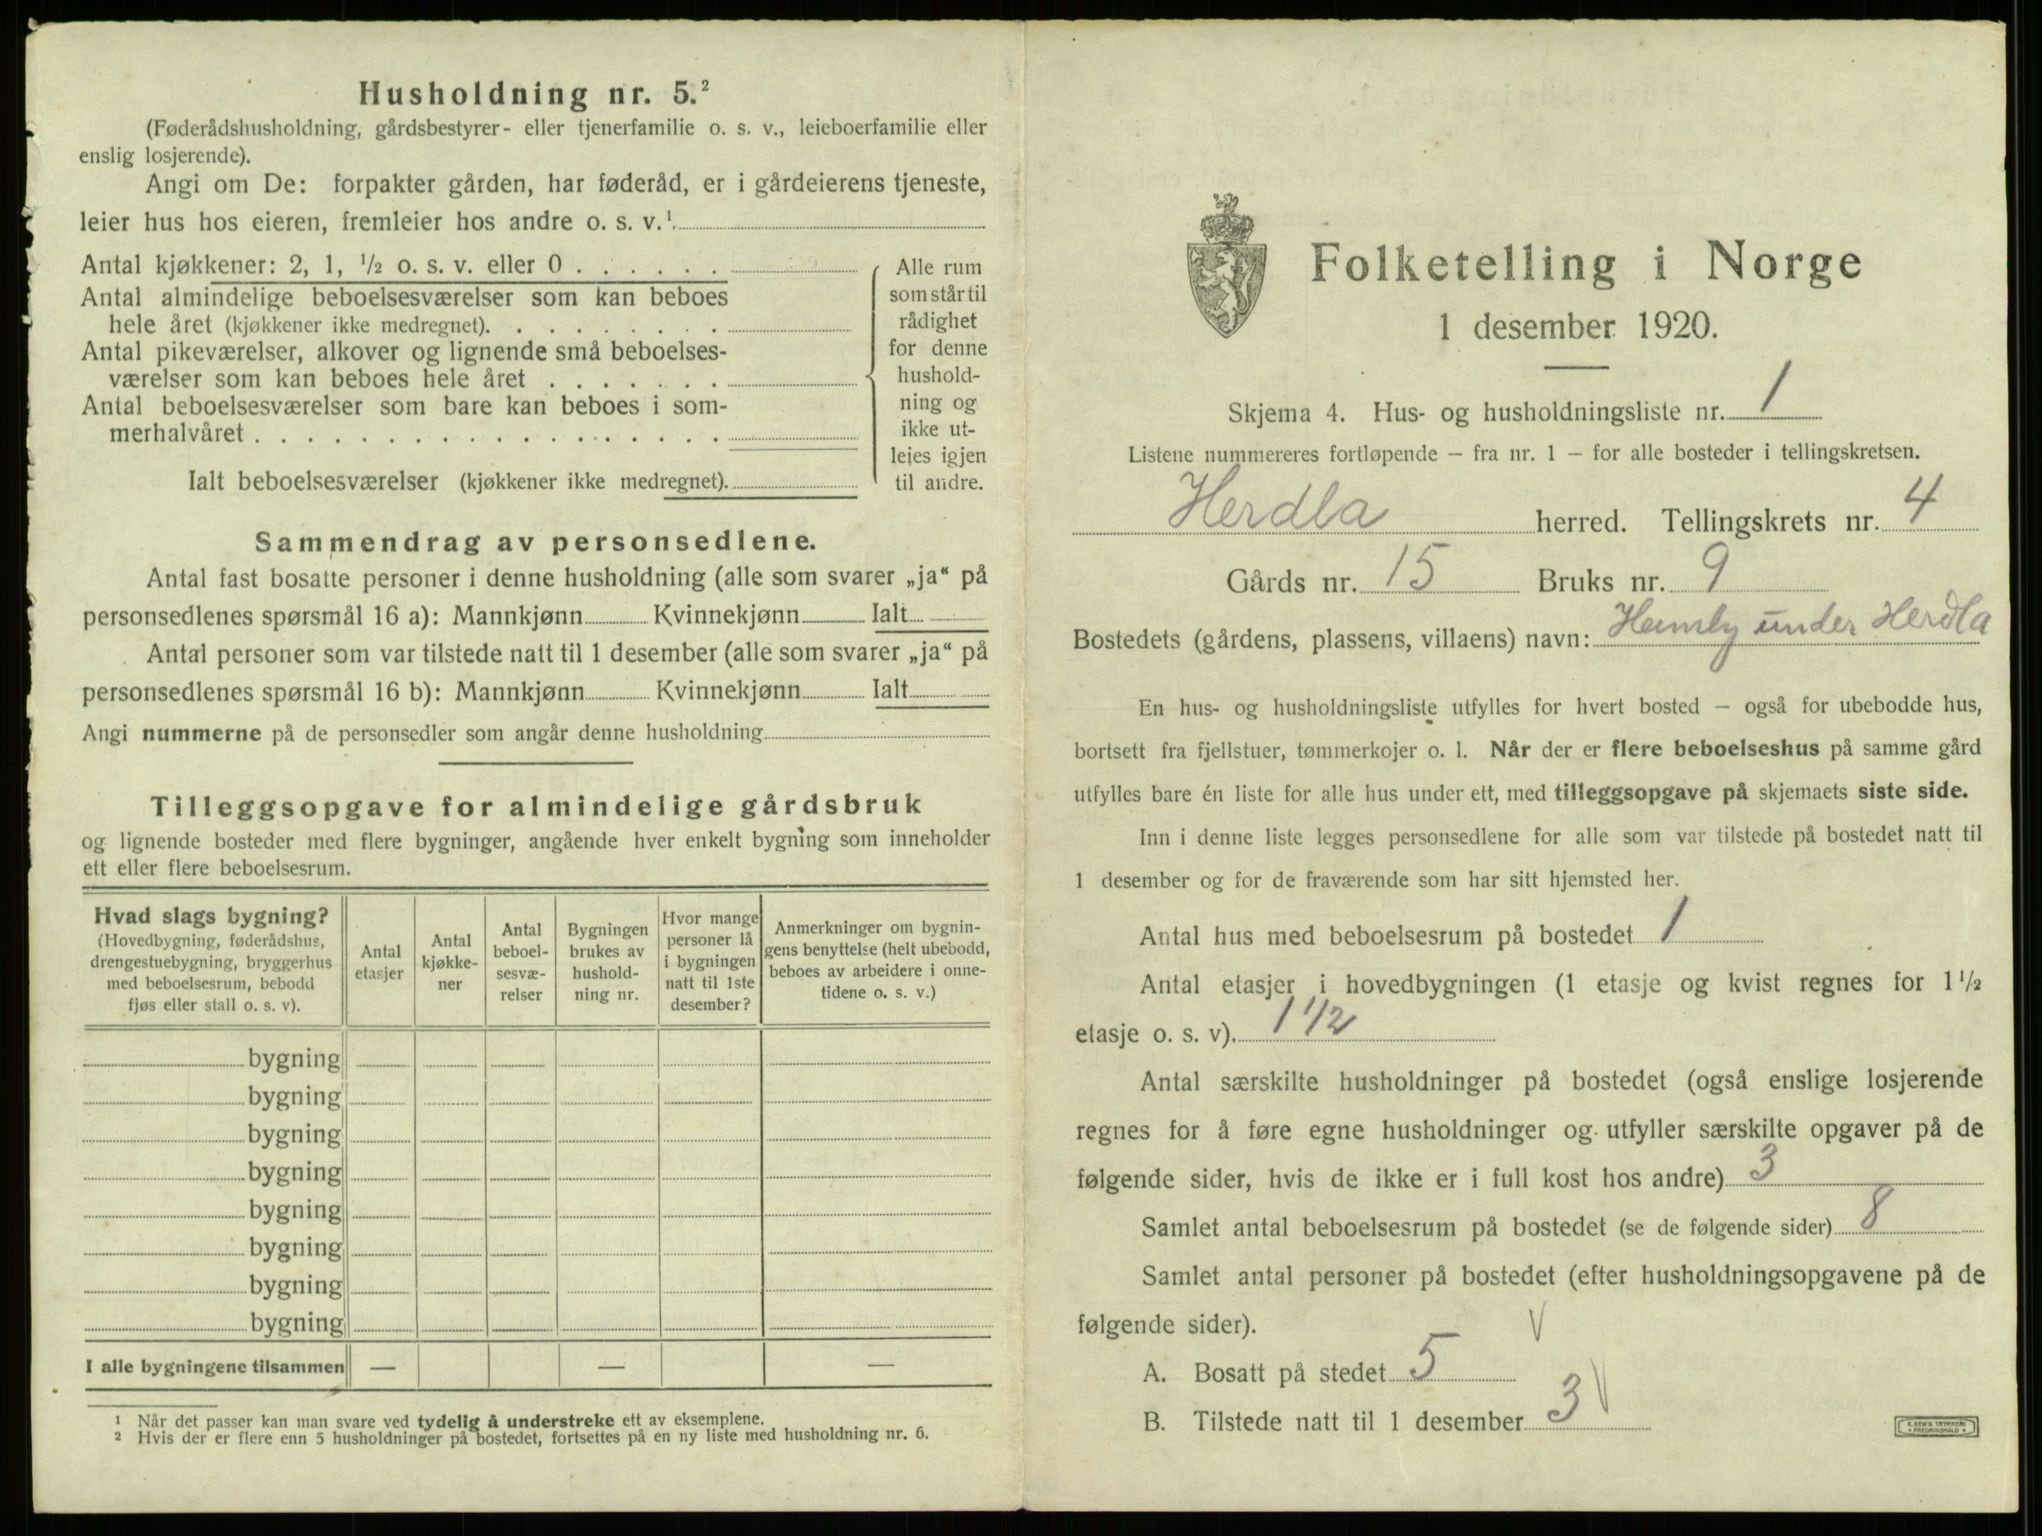 Husholdning nr. 5.²
(Føderådshusholdning, gårdsbestyrer- eller tjenerfamilie o. s. v., leieboerfamilie eller
enslig losjerende).
Angi om De: forpakter gården, har føderåd, er i gårdeierens tjeneste,
leier hus hos eieren, fremleier hos andre o. s. v.¹
Antal kjøkkener: 2, 1, ½ o. s. v. eller 0 . . . . . .
Antal almindelige beboelsesværelser som kan beboes
hele året (kjøkkener ikke medregnet). . . . . . . . .
Antal pikeværelser, alkover og lignende små beboelses-
værelser som kan beboes hele året . . . . . . .
Antal beboelsesværelser som bare kan beboes i som-
merhalvåret . . . . . . . . . . . . . . . . . .
Ialt beboelsesværelser (kjøkkener ikke medregnet).
Alle rum
som står til
rådighet
for denne
hushold-
ning og
ikke ut-
leies igjen
til andre.
Sammendrag av personsedlene.
Antal fast bosatte personer i denne husholdning (alle som svarer „ja“ på
personsedlenes spørsmål 16 a): Mannkjønn Kvinnekjønn Ialt
Antal personer som var tilstede natt til 1 desember (alle som svarer „ja“ på
personsedlenes spørsmål 16 b): Mannkjønn Kvinnekjønn Ialt
Angi nummerne på de personsedler som angår denne husholdning
Tilleggsopgave for almindelige gårdsbruk
og lignende bosteder med flere bygninger, angående hver enkelt bygning som inneholder
ett eller flere beboelsesrum.
Hvad slags bygning?
(Hovedbygning, føderådshus,
drengestuebygning, bryggerhus
med beboelsesrum, bebodd
fjøs eller stall o. s. v).
Antal
etasjer
Antal
kjøkke-
ner
Antal
beboel-
sesvæ-
relser
Bygningen
brukes av
hushold-
ning nr.
Hvor mange
personer lå
i bygningen
natt til 1ste
desember?
Anmerkninger om bygnin-
gens benyttelse (helt ubebodd,
beboes av arbeidere i onne-
tidene o. s. v.)
bygning
bygning
bygning
bygning
bygning
bygning
bygning
bygning
I alle bygningene tilsammen — — —
¹ Når det passer kan man svare ved tydelig å understreke ett av eksemplene.
² Hvis der er flere enn 5 husholdninger på bostedet, fortsettes på en ny liste med husholdning nr. 6.
Folketelling i Norge
1 desember 1920.
Skjema 4. Hus- og husholdningsliste nr. 1
Listene nummereres fortløpende – fra nr. 1 – for alle bosteder i tellingskretsen.
Herdla herred. Tellingskrets nr. 4
Gårds nr. 15 Bruks nr. 9
Bostedets (gårdens, plassens, villaens) navn: under Herdla
En hus- og husholdningsliste utfylles for hvert bosted – også for ubebodde hus,
bortsett fra fjellstuer, tømmerkojer o. l. Når der er flere beboelseshus på samme gård
utfylles bare én liste for alle hus under ett, med tilleggsopgave på skjemaets siste side.
Inn i denne liste legges personsedlene for alle som var tilstede på bostedet natt til
1 desember og for de fraværende som har sitt hjemsted her.
Antal hus med beboelsesrum på bostedet 1
Antal etasjer i hovedbygningen (1 etasje og kvist regnes for 1½
etasje o. s. v). 1 1/2
Antal særskilte husholdninger på bostedet (også enslige losjerende
regnes for å føre egne husholdninger og utfyller særskilte opgaver på de
følgende sider, hvis de ikke er i full kost hos andre) 3
Samlet antal beboelsesrum på bostedet (se de følgende sider) 8
Samlet antal personer på bostedet (efter husholdningsopgavene på de
følgende sider). V
A. Bosatt på stedet 5
B. Tilstede natt til 1 desember 3 V